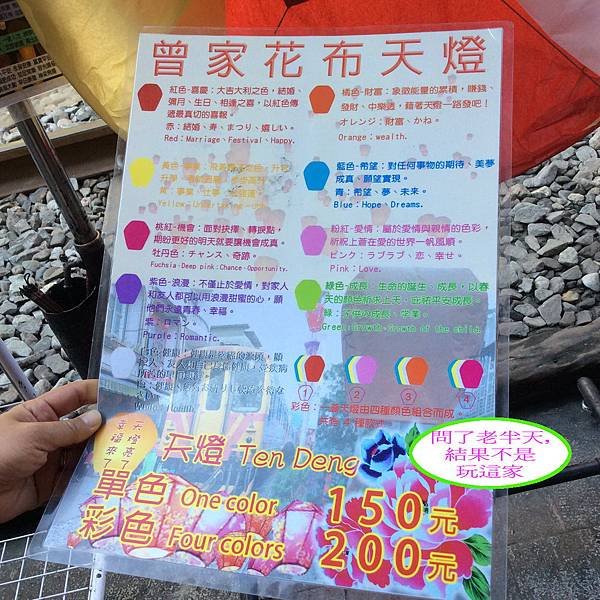 曾家花布天燈
紅色-喜慶：大吉大利之色，結婚、
彌月、生日、相逢之喜，以紅色傳
遞最真切的喜報。
赤：結婚、寿、まつり、嬉しい。
Red：Marriage、Festival、Happy.
橘色-財富：象徵能量的累積，賺錢、
發財、中樂透，藉著天燈一路發吧！
オレンジ：財富、かね。
Orange：wealth.
藍色-希望：對任何事物的期待、美夢
成真、願望實現。
青：希望、夢、未來。
Blue：Hope、Dreams.
桃紅-機會：面對抉擇、轉捩點，
期盼更好的明天就要讓機會成真。
牡丹色：チャンス、奇跡。
Fuchsia、Deep pink：Chance、Opportunity.
粉紅-愛情：屬於愛情與親情的色彩，
祈祝上蒼在愛的世界一帆風順。
ピンク：ラブラブ、恋、幸せ。
Pink：Love.
紫色-浪漫：不僅止於愛情，對家人
和友人都可以用浪漫甜蜜的心，願
他們永遠青春、幸福。
紫：ロマン。
Purple：Romantic.
綠色-成長：生命的誕生、成長，以春
天的顏色祈求上天、庇祐平安成長。
Green：Growth、Growth of the child.
① ② ③ ④
彩色：一盞天燈由四種顏色組合而成
共有 4 種款式
天燈亮了
幸福來了
天燈 Ten Deng
單色 One color 150元
彩色 Four colors 200元
問了老半天,
結果不是
玩這家